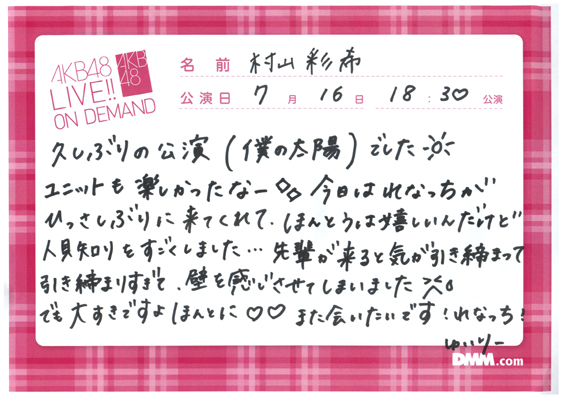 AKB48
LIVE!!
ON DEMAND
AKB
48
名前 村山彩希
公演日 7月16日 18:30公演
久しぶりの公演(僕の太陽)でした
ユニットも楽しかったなー◇◇今日はれなっちが
ひっさしぶりに来てくれて、ほんとうは嬉しいんだけど
人見知りをすごくしました…先輩が来ると気が引き締まって
引き締まりすぎて、壁を感じさせてしまいました
でも大すきですよほんとに♡♡また会いたいです!れなっち!
ゆいりー
DMM.com